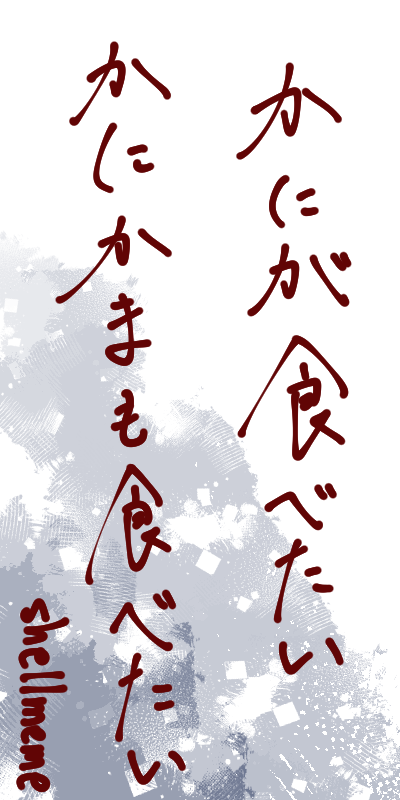 かにが食べたい
かにかまも食べたい
shellmeme